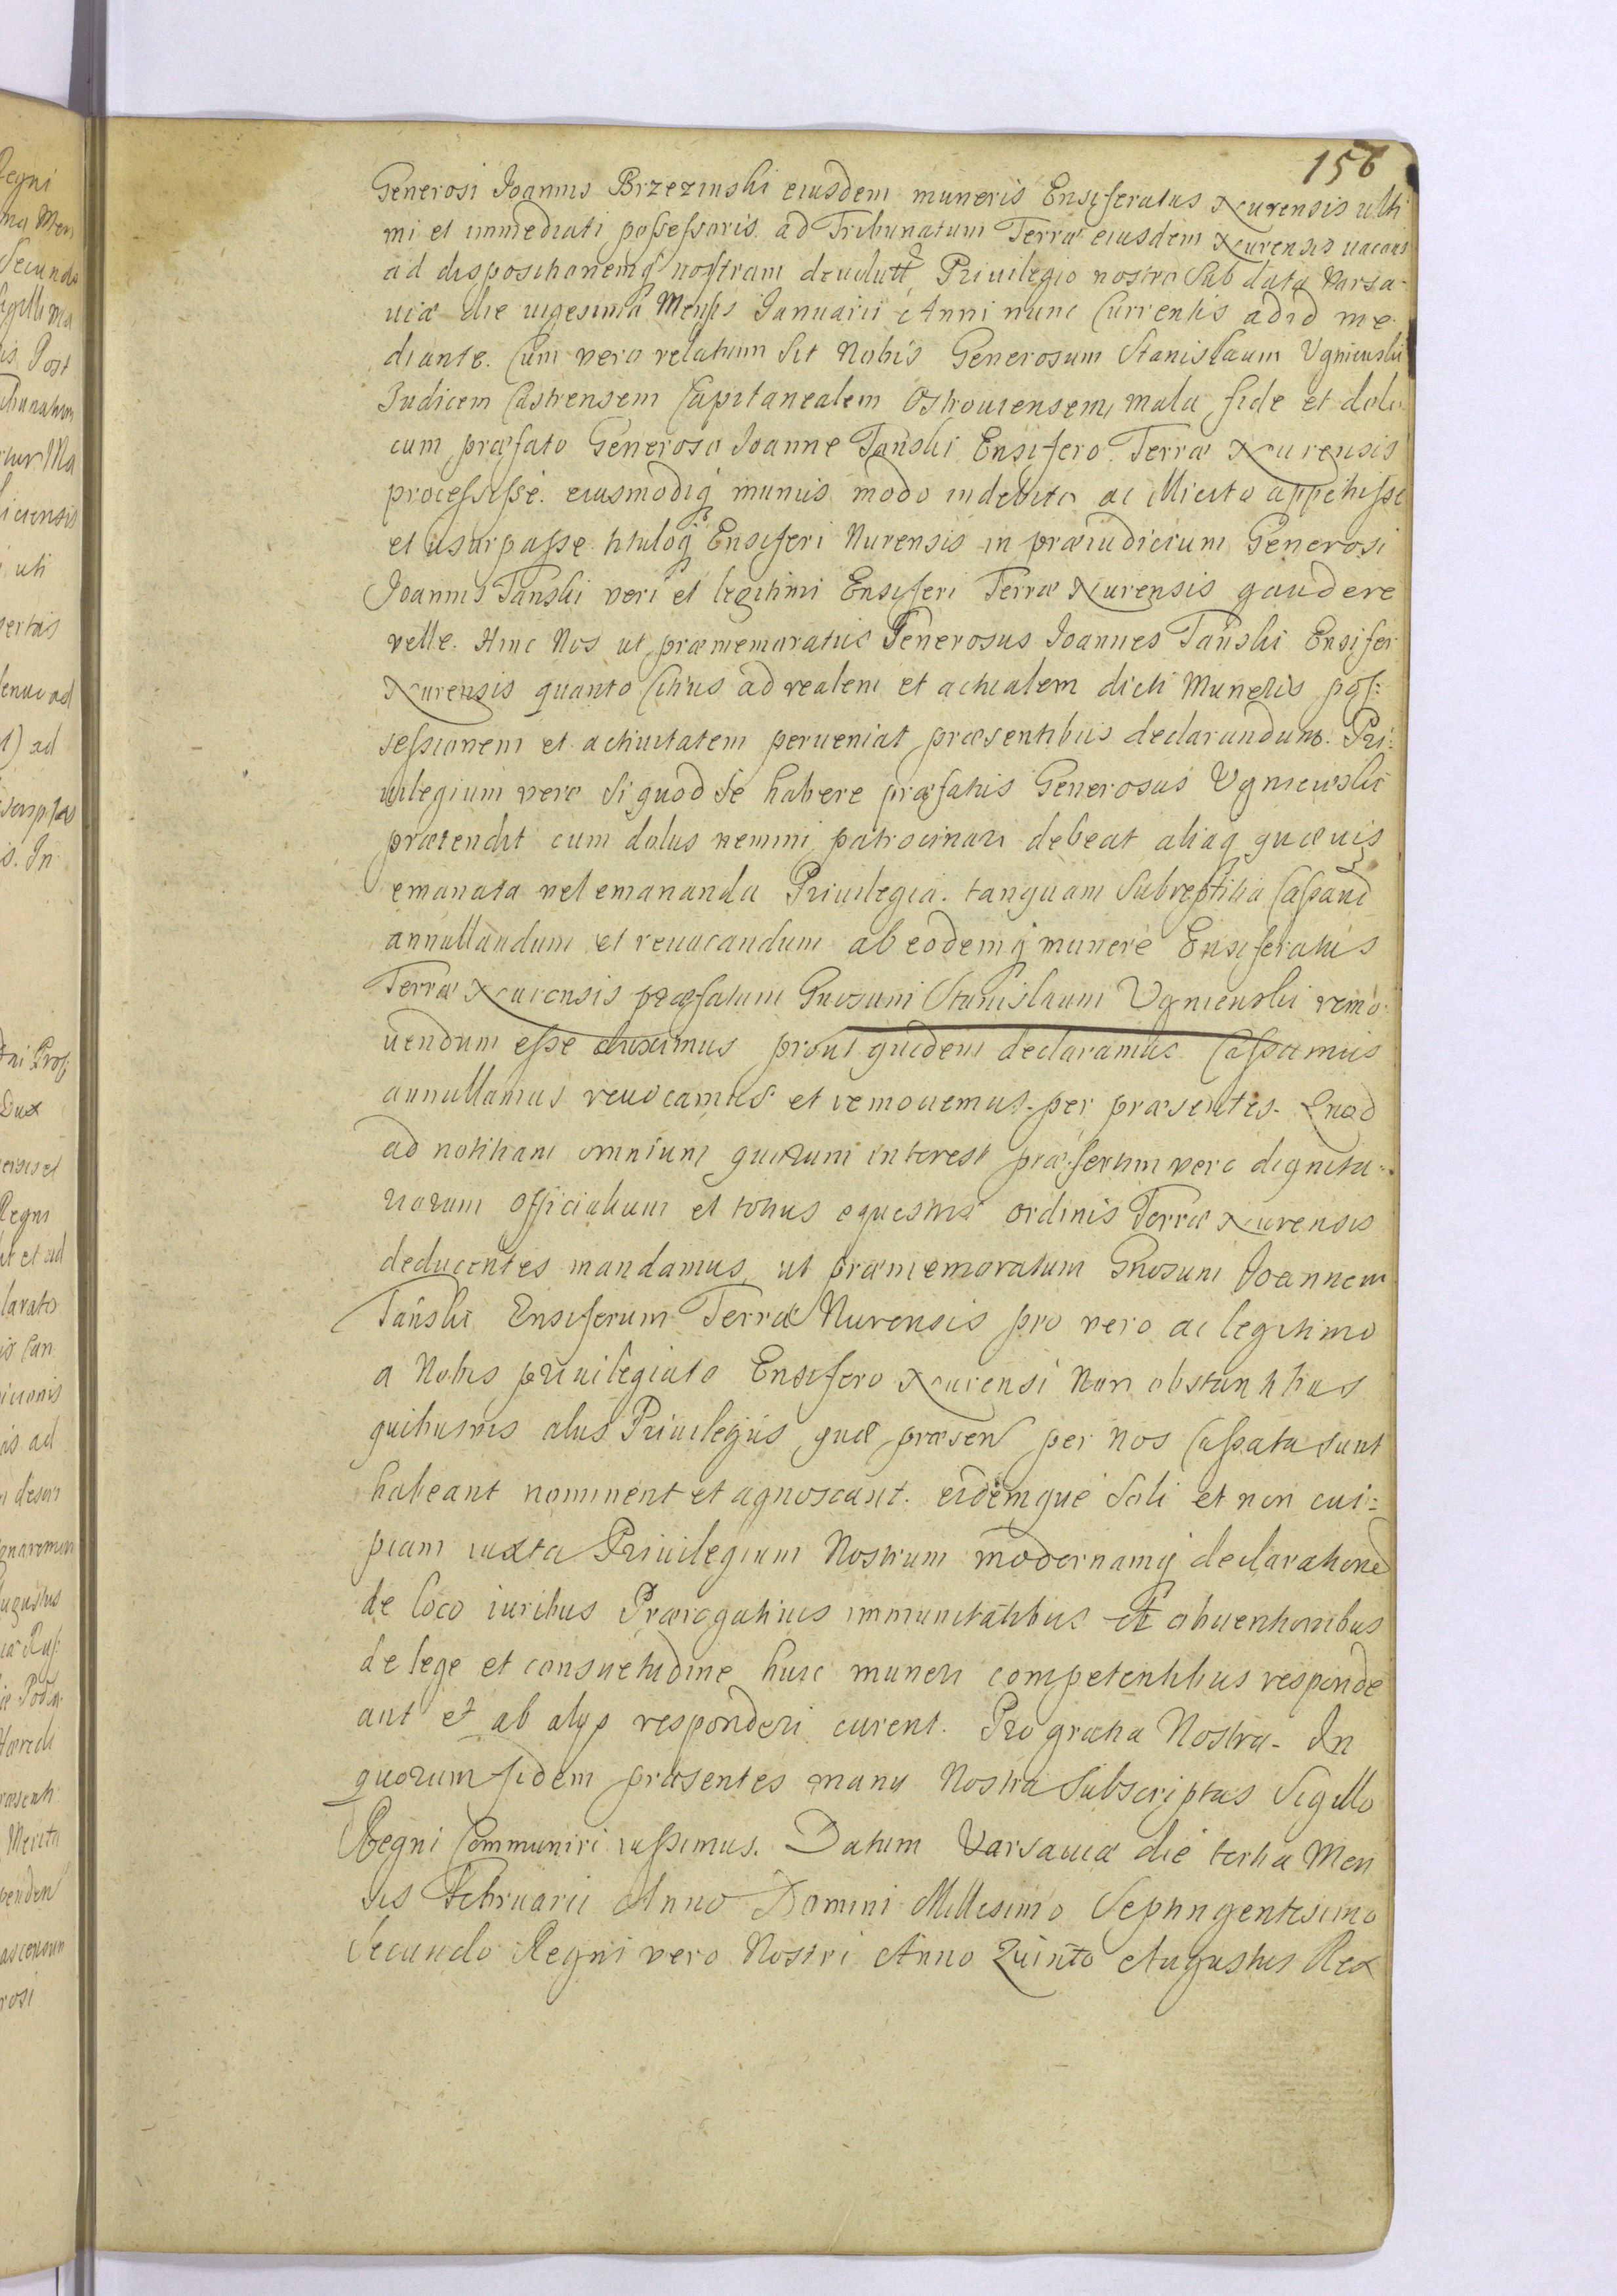 156
Generosi Joannis Brzezinski eiusdem muneris Ensiferatus Nurensis ulti
mi et immediati possessoris. ad Tribunatum Terræ eiusdem Nurensis uacans
ad dispositionemq nostram deuolutt Priuilegio nostro Sub data Varsa-
uiæ die uigesima Mensis Januarii Anni nunc Currentis ad id me-
diante. Cum vero relatum Sit Nobis Generosum Stanislaum Vgniewski
Judicem Castrensem Capitanealem Ostrouiensem, mala fide et dolo
cum præfato Generoso Joanne Tanski Ensifero Terræ Nurensis
processisse. eiusmodiq munus modo indebito ac illicito appetiisse
et usurpasse. tituloq Ensiferi Nurensis in præiudicium Generosi
Joannis Tanski veri et legitimi Ensiferi Terræ Nurensis gaudere
velle. Hinc Nos ut præmemoratus Generosus Joannes Tanski Ensifer
Nurensis quanto Citius ad realem et actualem dicti Muneris pos:
sessionem et actiuitatem perueniat præsentibus declarandum. Pri:
uilegium vero Si quod Se habere præfatus Generosus Vgniewski
prætendit cum dolus nemini patrocinari debeat aliaq quæuis
emanata vel emananda Priuilegia. tanquam Subreptitia Cassand
annullandum et reuocandum ab eodemq munere Ensiferatus
Terræ Nurensis præfatum Gnosum Stanislaum Vgniewski remo-
uendum esse duximus prout quidem declaramus Cassamus
annullamus reuocamus et remouemus per præsentes. Quod
ad notitiam omnium quorum interest præsertim vero dignita-
riorum Officialium et totius equestris ordinis Terræ Nurensis
deducentes mandamus, ut præmemoratum Gnosum Joannem
Tanski Ensiferum Terræ Nurensis pro vero ac legitimo
a Nobis priuilegiato Ensifero Nurensi Non obstantibus
quibusuis aliis Priuilegiis quæ præsen per nos Cassata sunt
habeant nominent et agnoscant. eidemque Soli et non cui:
piam iuxta Priuilegium Nostrum modernamq declarationē
de loco iuribus Prærogatiuis immunitatibus et obuentionibus
de lege et consuetudine huic muneri competentibus responde
ant et ab alys responderi curent. Pro gratia Nostra. In
quorum fidem præsentes manu Nostra Subscriptas Sigillo
Regni Communiri iussimus. Datum Varsauiæ die tertia Men
sis Februarii Anno Domini Millesimo Septingentesimo
Secundo Regni vero Nostri Anno Quinto Augustus Rex